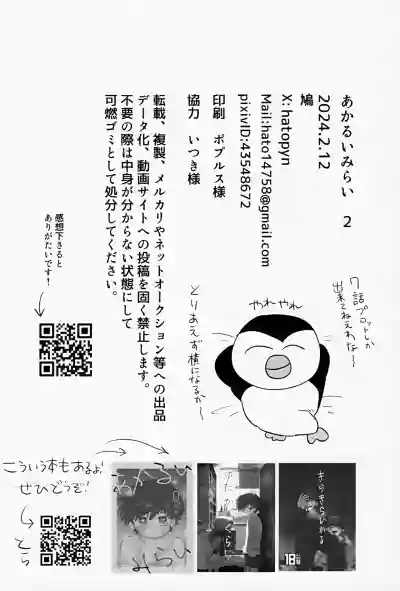 あかるいみらい 2
2024.2.12
鳩
X: hatopyn
Mail:hato14758@gmail.com
pixivID:43548672
印刷 ポプルス様
協力 いつき様
転載、複製、メルカリやネットオークション等への出品
データ化、動画サイトへの投稿を固く禁止します。
不要の際は中身が分からない状態にして
可燃ゴミとして処分してください。
感想下さると
ありがたいです！
7話プロットしか
出来てねえわな〜
やれやれ
とりあえず横になるか〜
こういう本もあるよ
ぜひどうぞ!
とら
あかるい
みらい
きらきらひかる
18